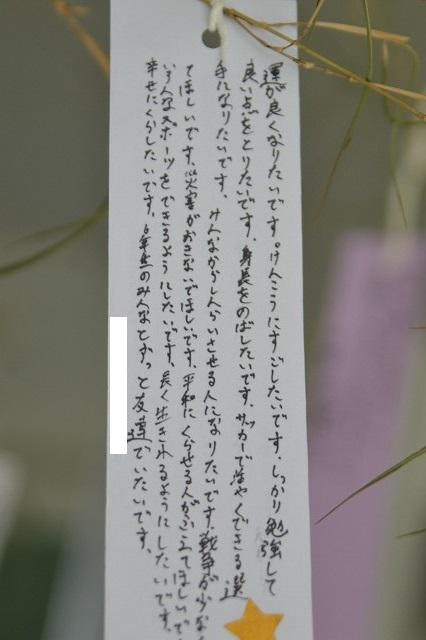 運が良くなりたいです。けんこうにすごしたいです。しっかり勉強して
良い点をとりたいです。身長をのばしたいです。サッカーで活やくできる選
手になりたいです。みんなからしんらいさせる人になりたいです。戦争が少な
てほしいです。災害がおきないでほしいです。平和にくらせる人がふえてほしいで
いろんなスポーツをできるようにしたいです。長く生きれるようにしたいです。
幸せにくらしたいです。6年生のみんなとずっと友達でいたいです。